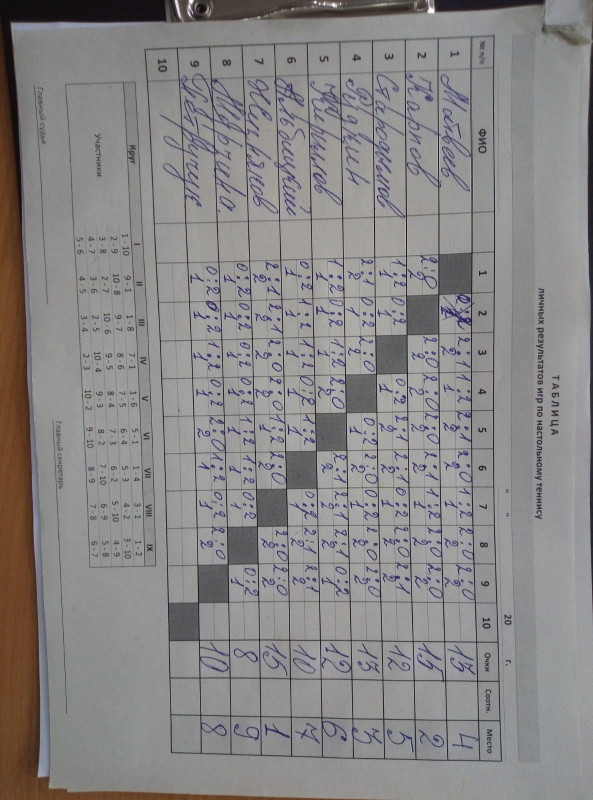 ТАБЛИЦА
личных результатов игр по настольному теннису
" " 20 г.
№ п/п ФИО 1 2 3 4 5 6 7 8 9 10 Очки Соотн. Место
1 Матвеев 2:1 1:2 2:1 2:0 1:2 2:0 2:0 13 4
2 1 2 2 1 2 2
2 Карпов 2:0 2:0 2:0 2:0 2:1 1:2 2:0 2:0 15 2
2 2 2 2 2 1 2 2
3 1:2 0:2 0:2 2:1 2:1 0:2 2:0 2:1 12 5
1 1 1 2 2 1 2 2
4 2:1 0:2 2:0 0:2 2:0 0:2 2:0 2:0 13 3
2 1 2 1 2 1 2 2
5 Кирилов 1:2 0:2 1:2 2:0 2:1 2:1 2:1 0:2 12 6
1 1 1 2 2 2 2 1
6 Альбицкий 0:2 1:2 1:2 0:2 1:2 0:2 2:1 2:1 10 7
1 1 1 1 1 1 2 2
7 2:1 2:1 2:0 2:0 1:2 2:0 2:0 2:0 15 1
2 2 2 2 1 2 2 2
8 0:2 0:2 0:2 0:2 1:2 1:2 0:2 0:2 8 9
1 1 1 1 1 1 1 1
9 0:2 0:2 1:2 0:2 2:0 1:2 0:2 2:0 10 8
1 1 1 1 2 1 1 2
10
Круг I II III IV V VI VII VIII IX
Участники
1 - 10 9 - 1 1 - 8 7 - 1 1 - 6 5 - 1 1 - 4 3 - 1 1 - 2
2 - 9 10 - 8 9 - 7 8 - 6 7 - 5 6 - 4 5 - 3 4 - 2 3 - 10
3 - 8 2 - 7 10 - 6 9 - 5 8 - 4 7 - 3 6 - 2 5 - 10 4 - 9
4 - 7 3 - 6 2 - 5 10 - 4 9 - 3 8 - 2 7 - 10 6 - 9 5 - 8
5 - 6 4 - 5 3 - 4 2 - 3 10 - 2 9 - 10 8 - 9 7 - 8 6 - 7
Главный судья Главный секретарь